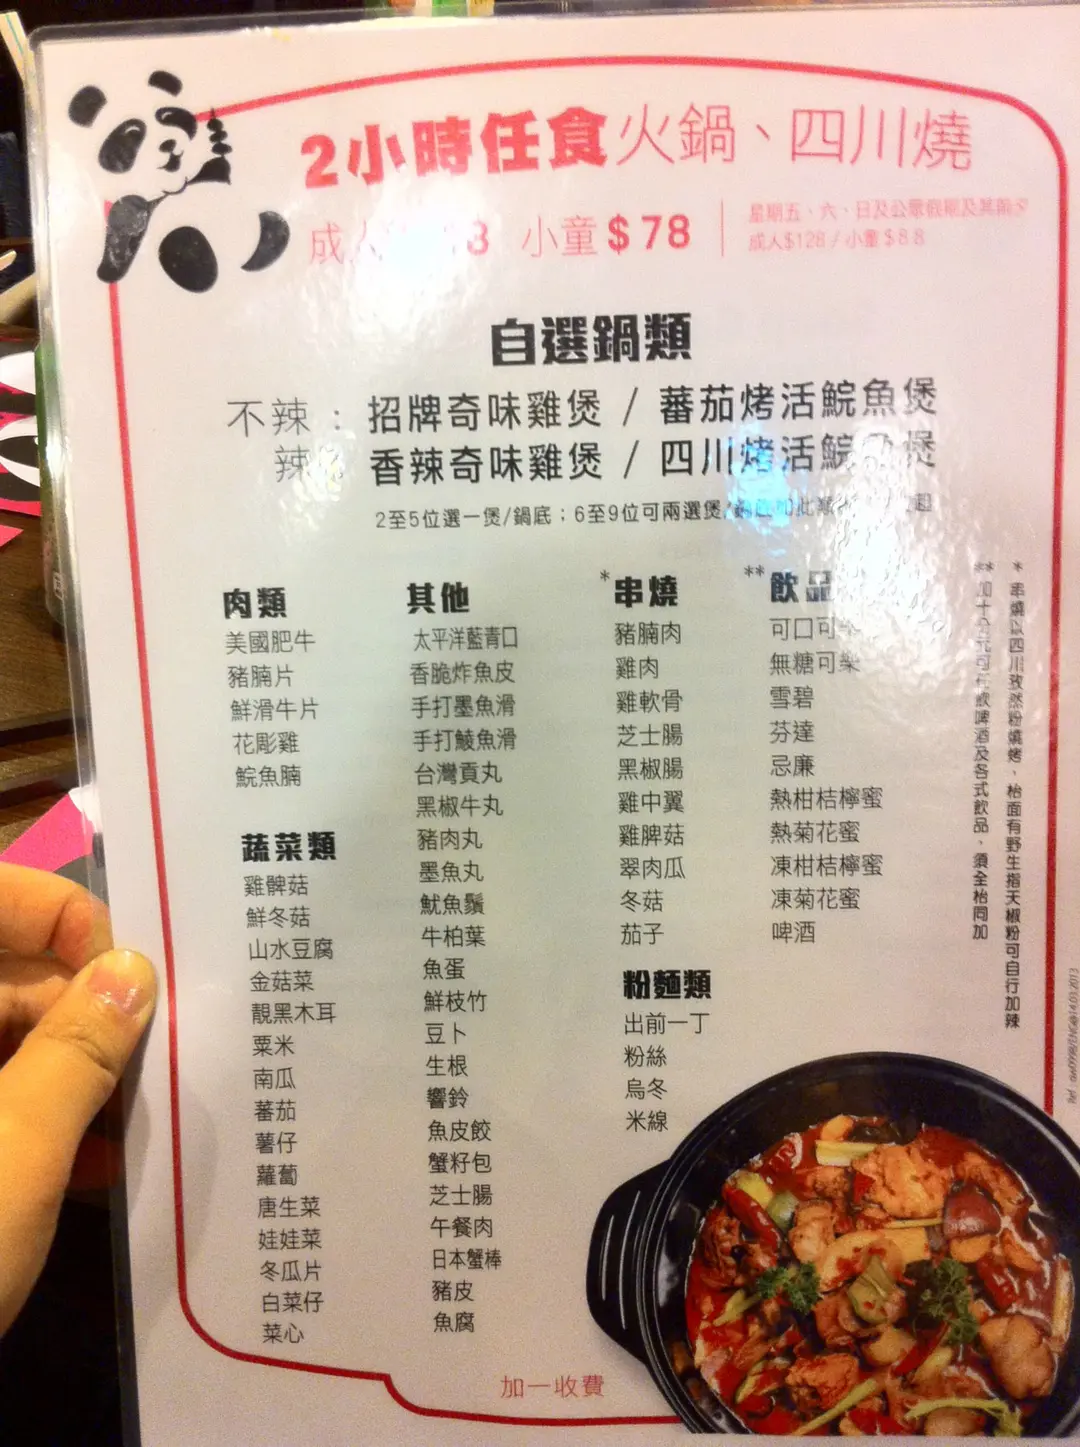 2小時任食火鍋、四川燒
成人 8 小童$78
星期五、六、日及公眾假期及其前夕
成人$128/小童$88
自選鍋類
不辣：招牌奇味雞煲 / 蕃茄烤活鯇魚煲
辣 香辣奇味雞煲 / 四川烤活鯇 煲
2至5位選一煲/鍋底；6至9位可兩選煲/鍋底如此類
肉類
美國肥牛
豬腩片
鮮滑牛片
花彫雞
鯇魚腩
蔬菜類
雞髀菇
鮮冬菇
山水豆腐
金菇菜
靚黑木耳
粟米
南瓜
蕃茄
薯仔
蘿蔔
唐生菜
娃娃菜
冬瓜片
白菜仔
菜心
其他
太平洋藍青口
香脆炸魚皮
手打墨魚滑
手打鯪魚滑
台灣貢丸
黑椒牛丸
豬肉丸
墨魚丸
魷魚鬚
牛柏葉
魚蛋
鮮枝竹
豆卜
生根
響鈴
魚皮餃
蟹籽包
芝士腸
午餐肉
日本蟹棒
豬皮
魚腐
*串燒
豬腩肉
雞肉
雞軟骨
芝士腸
黑椒腸
雞中翼
雞脾菇
翠肉瓜
冬菇
茄子
粉麵類
出前一丁
粉絲
烏冬
米線
**飲品
可口可樂
無糖可樂
雪碧
芬達
忌廉
熱柑桔檸蜜
熱菊花蜜
凍柑桔檸蜜
凍菊花蜜
啤酒
*串燒以四川孜然粉燒烤、枱面有野生指天椒粉可自行加辣
**加十 元可任飲啤酒及各式飲品、須全枱同加
加一收費